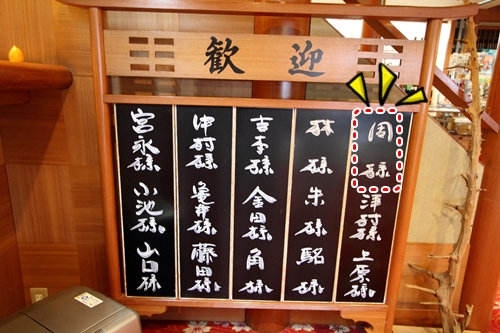 歓迎
周 様 津村様 上原様
林 様 朱 様 駱 様
吉本様 金田様 角 様
津村様 亀井様 藤田様
宮永様 小池様 山口様